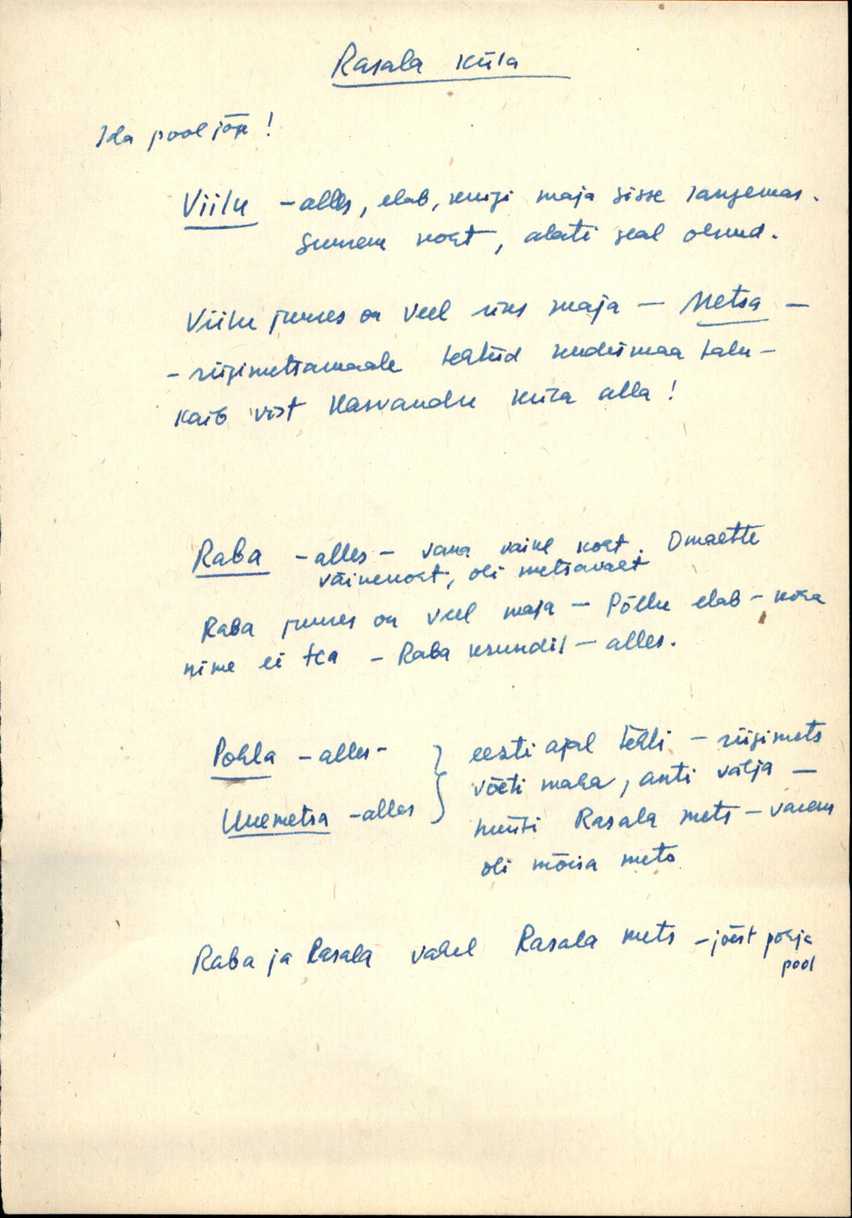 Rasala küla
Ida pool jõge!
Viilu - alles, elab, kuigi maja sisse langemas.
Suurem koht, alati seal olnud.
Viilu juures on veel üks maja - Metsa -
- riigimetsamaale tehtud uudismaa talu -
käib vist Kasvandu küla alla!
Raba - alles - vana väike koht. Omaette
väikekoht, oli metsavaht
Raba juures on veel maja - Põllu elab - koha
nime ei tea - Raba krundil - alles.
Pohla - alles -
Uuemetsa - alles
eesti ajal tehti - riigimets
võeti maha, anti välja -
hüüti Rasala mets - varem
oli mõisa mets
Raba ja Rasala vahel Rasala mets - jõest põhja
pool